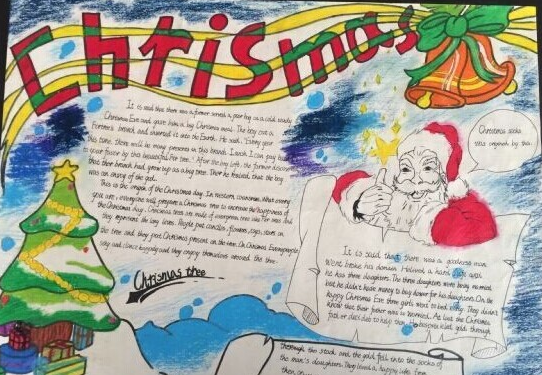 Christmas
It is said that there was a farmer served a poor boy on a cold snowy
Christmas Eve and gave him a big Christmas meal. The boy cut a
branch and inserted it into the Earth. He said, "Every year
this time, there will be many presents in this branch. I wish I can pay back
to your favor by this beautiful tree." After the boy left, the farmer discovered
that their branch had grown up as a big tree. Then he realized that the boy
was an of the god.
This is the origin of the Christmas day. In western countries, what
you are, everyone will prepare a Christmas tree to increase the happiness of
the Christmas day. Christmas tree are made of evergreen tree like
they represent the long lives. People put candles, flowers, toys, stars on
the tree and they put Christmas present on the tree. On Christmas Eve, people
sing and dance happily and they enjoy themselves around the tree.
Christmas thee
Christmas socks
was originate by this.
It is said that there was a goodness man
went broke his domain. He lived a hard but
he has three daughters. The three daughters were being married,
but he didn't have money to buy dower for his daughters. On the
happy Christmas Eve three girls went to bed early. They didn't
know that their father was so worried. At last the Christmas
father decided to help them. He gold through
thorough the stack and the gold fell into the socks of
the man's daughters. They lived a happy life from
then on...